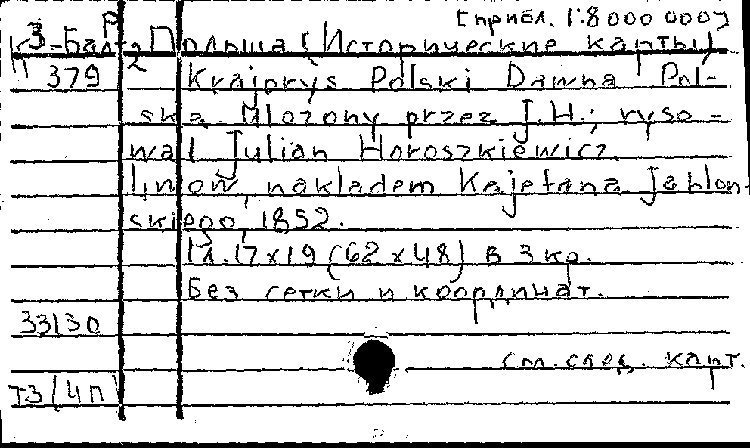 [прибл. 1:8 000 000]
К 3-Балт Р 2 Польша (Исторические карты)
379 Krajprys Polski Dawna Pol-
ska. Mlozony przez J.H.; ryso-
wal Julian Horoszkiewicz.
lwow, nakladem Kajetana Jablon-
skiego, 1852.
1л. 17x19 (62x48) в 3 кр.
Без сетки и координат.
33130
см. след. карт.
Т3/4п